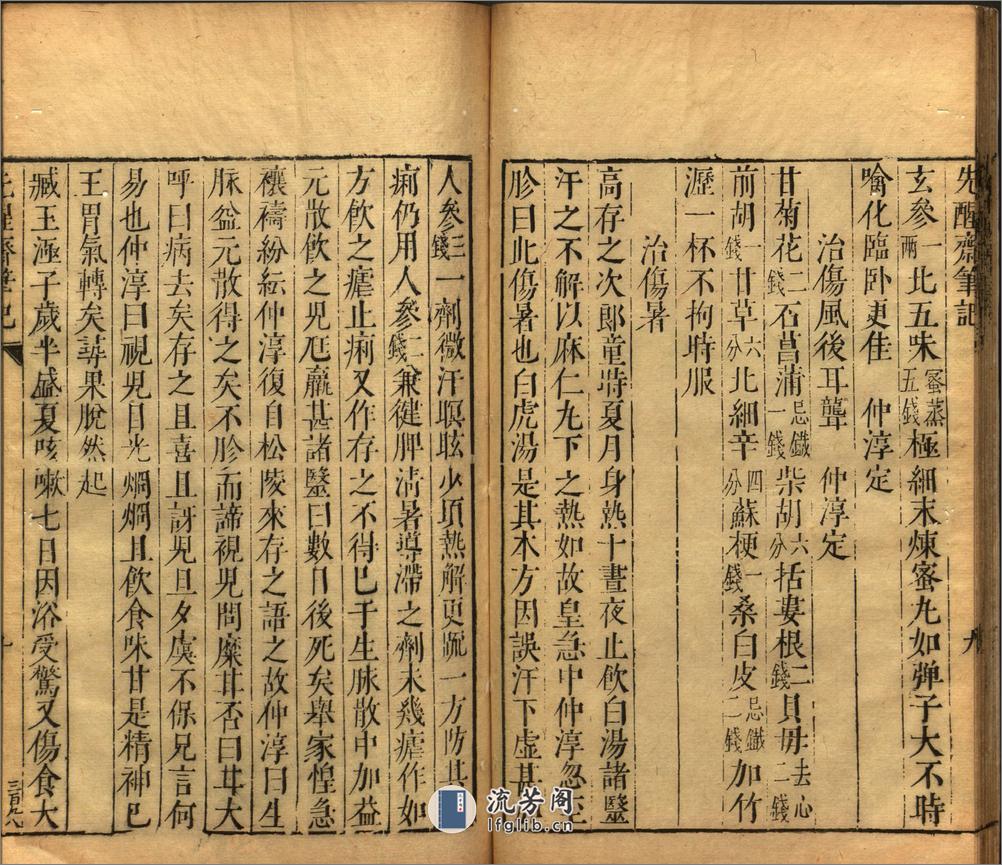 先醒齋筆記
玄參一兩北五味蜜蒸五錢極細末煉蜜丸如彈子大不時
噙化臨卧更佳　仲淳定
治傷風後耳聾　仲淳定
甘菊花二錢石菖蒲忌鐵一錢柴胡六分括蔞根二錢貝母去心二錢
前胡一錢甘草六分北細辛四分蘇梗一錢桑白皮忌鐵二錢加竹
瀝一杯不拘時服
治傷暑
高存之次郎童時夏月身熱十晝夜止飲白湯諸醫
汗之不解以麻仁丸下之熱如故皇急中仲淳忽至
胗曰此傷暑也白虎湯是其本方因誤汗下虛甚加
人參三錢一劑微汗瞑眩少項熱解更疏一方防其
痢仍用人參二錢兼健脾清暑導滯之劑未幾瘧作如
方飲之瘧止痢又作存之不得已于生脉散中加益
元散飲之児尫羸甚諸醫曰數日後死矣舉家惶急
禳禱紛紜仲淳復自松陵來存之語之故仲淳曰生
脉益元散得之矣不胗而諦視児問糜甘否曰甘大
呼曰病去矣存之且喜且訝児旦夕虞不保兄言何
易也仲淳曰視児目光烱烱且飲食味甘是精神已
王胃氣轉矣尋果脫然起
臧玉涵子歲半盛夏咳嗽七日因浴受驚又傷食大
先醒齋筆記
九
三百九八
流芳阁
lfglib.cn